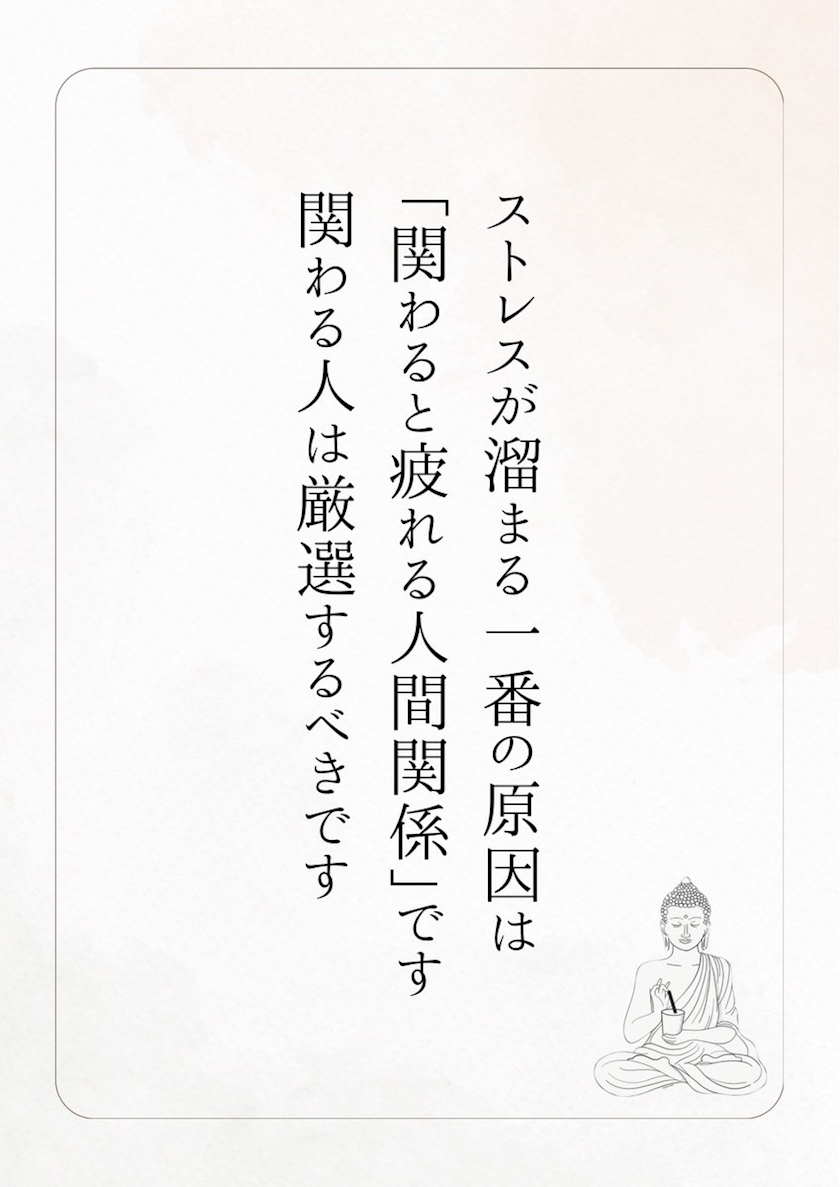 ストレスが溜まる一番の原因は
「関わると疲れる人間関係」です
関わる人は厳選するべきです